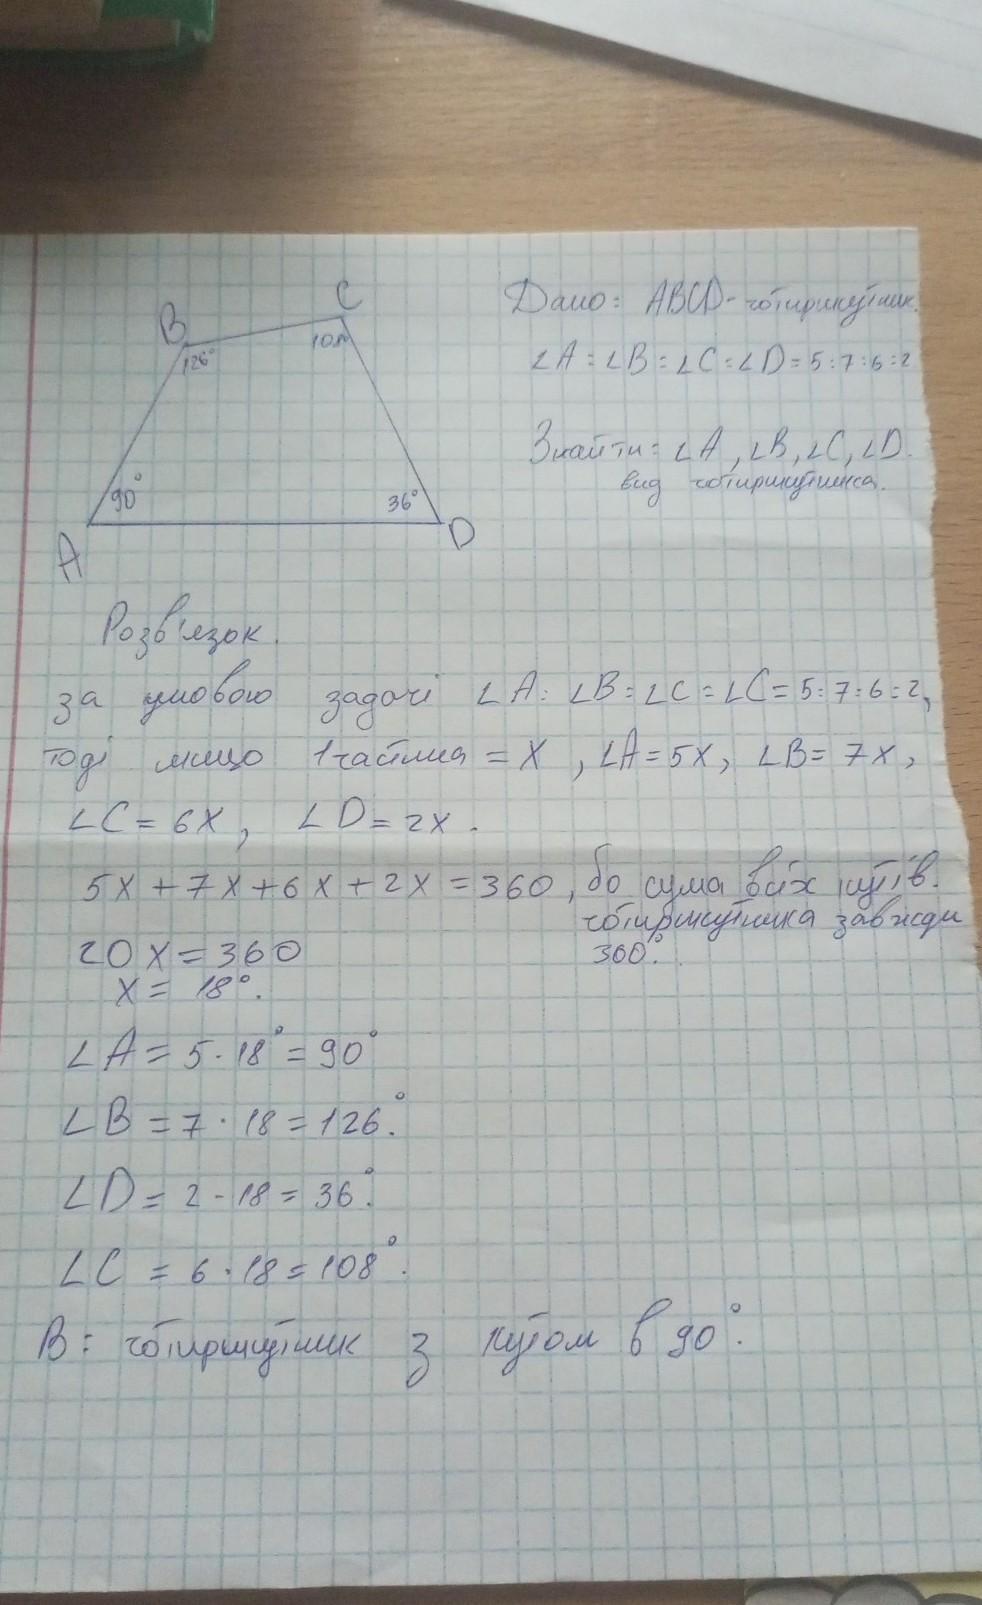 B
C
126°
108
90°
36°
A
D
Дано: ABCD - чотирикутник.
∠A : ∠B : ∠C : ∠D = 5:7:6:2
Знайти: ∠A, ∠B, ∠C, ∠D.
вид чотирикутника.
Розв'язок.
за умовою задачі ∠A : ∠B : ∠C : ∠C = 5:7:6:2,
тоді якщо 1 частина = x, ∠A = 5x, ∠B = 7x,
∠C = 6x, ∠D = 2x.
5x + 7x + 6x + 2x = 360, бо сума всіх кутів.
чотирикутника завжди
360°.
20x = 360
x = 18°.
∠A = 5 · 18° = 90°
∠B = 7 · 18 = 126°.
∠D = 2 · 18 = 36°.
∠C = 6 · 18 = 108°.
В: чотирикутник з кутом в 90°.